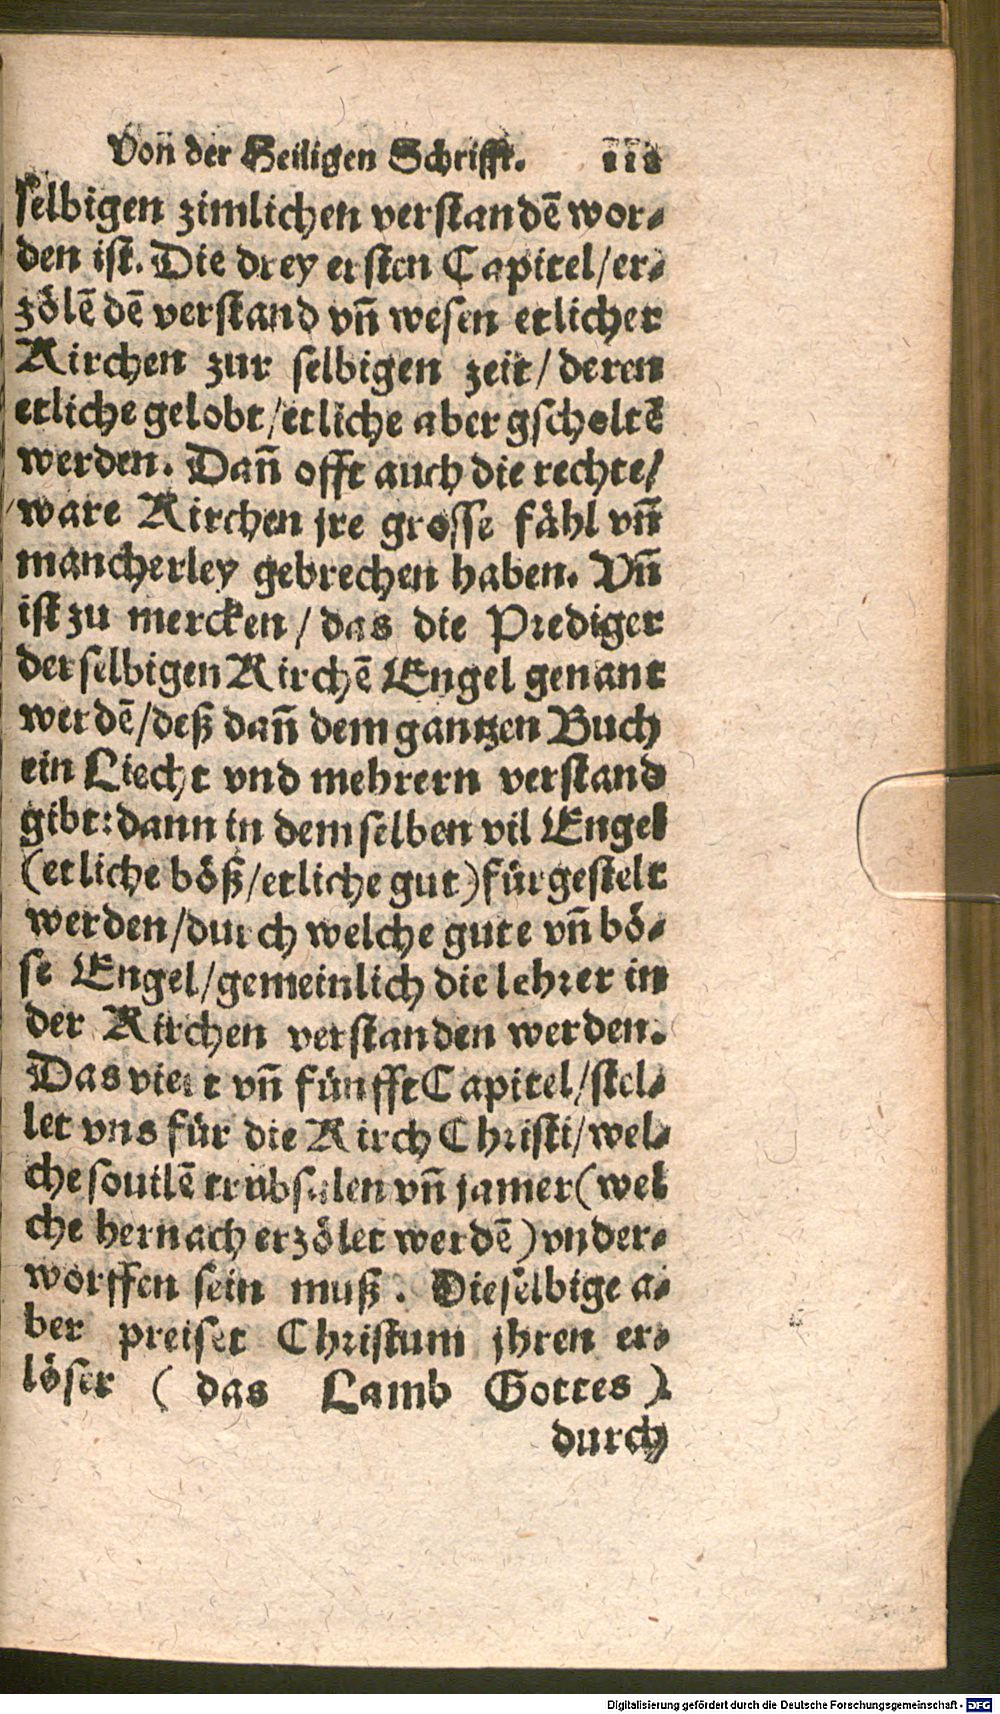 Von̄ der Heiligen Schrifft. 111
selbigen zimlichen verstandē wor⸗
den ist. Die drey ersten Capitel/er⸗
zölē dē verstand vn̄ wesen etlicher
Kirchen zur selbigen zeit/deren
etliche gelobt/etliche aber gscholtē
werden. Dan̄ offt auch die rechte/
ware Kirchen jre grosse fähl vn̄
mancherley gebrechen haben. Vn̄
ist zu mercken/das die Prediger
der selbigen Kirchē Engel genant
werdē/deß dan̄ dem gantzen Buch
ein Liecht vnd mehrern verstand
gibt: dann in dem selben vil Engel
(etliche böß/etliche gut) fürgestelt
werden/durch welche gute vn̄ bö⸗
se Engel/gemeinlich die lehrer in
der Kirchen verstanden werden.
Das viert vn̄ fünfft Capitel/stel⸗
let vns für die Kirch Christi/wel⸗
che souilē trübsalen vn̄ jamer (wel
che hernach erzölet werdē) vnder⸗
worffen sein muß. Dieselbige a⸗
ber preiset Christum jhren er⸗
löser (das Lamb Gottes)
durch
Digitalisierung gefördert durch die Deutsche Forschungsgemeinschaft - DFG